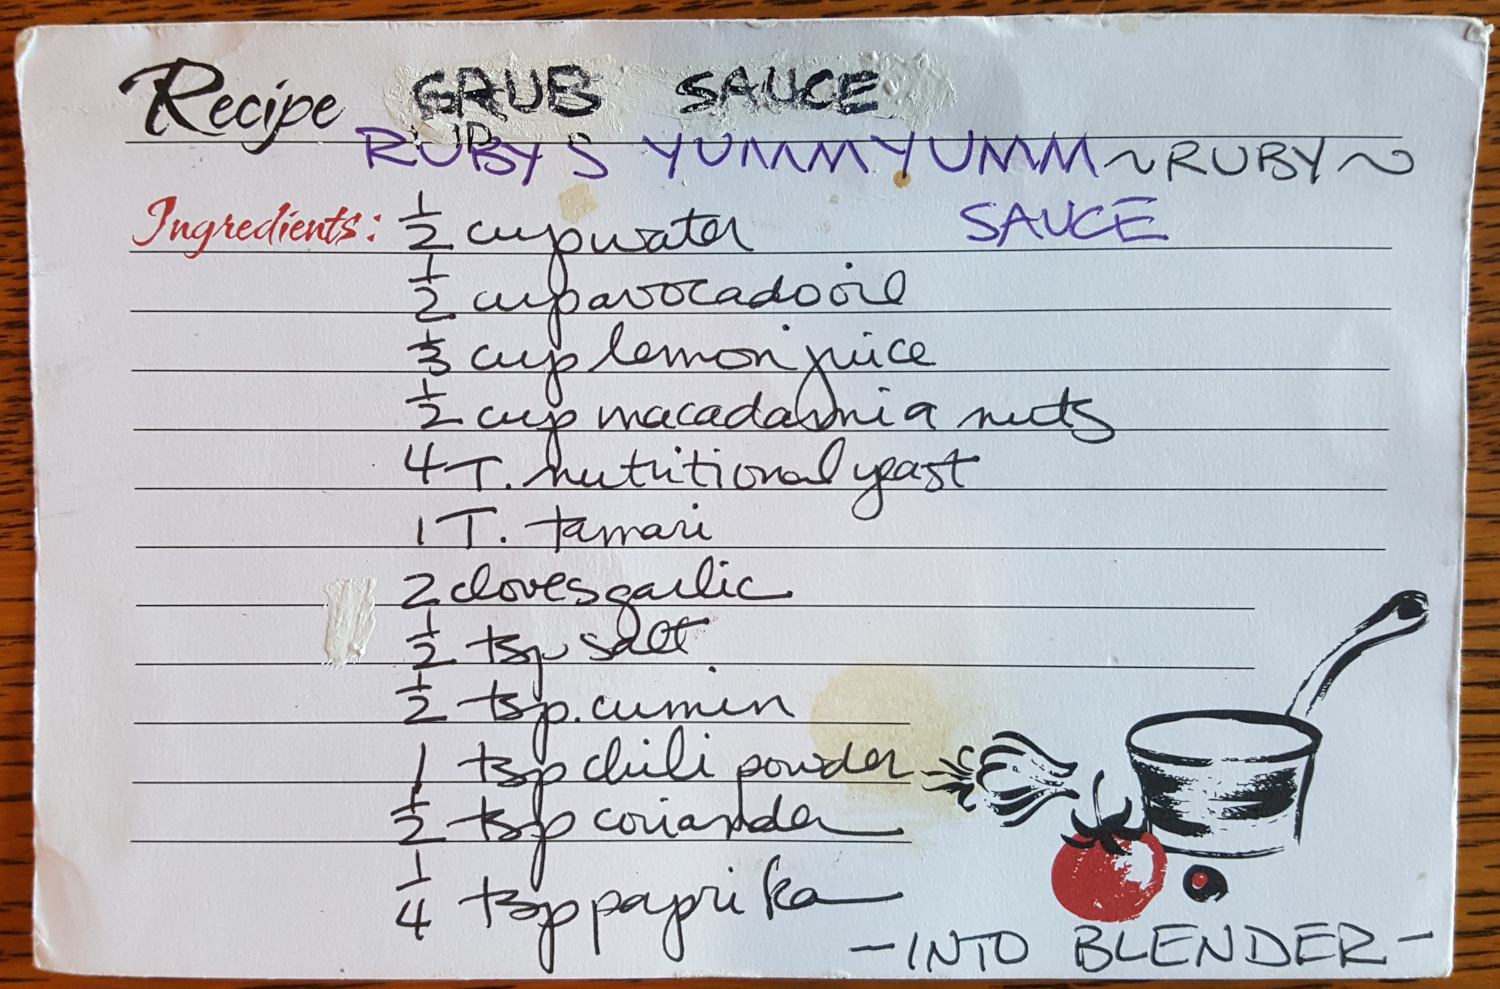 Recipe GRUB SAUCE
RUBY'S YUMM YUMM ~RUBY~
SAUCE
Ingredients: 1/2 cup water
1/2 cup avocado oil
1/3 cup lemon juice
1/2 cup macadamia nuts
4 T. nutritional yeast
1 T. tamari
2 cloves garlic
1/2 tsp salt
1/2 tsp. cumin
1 tsp chili powder
1/2 tsp coriander
1/4 tsp paprika
-INTO BLENDER-